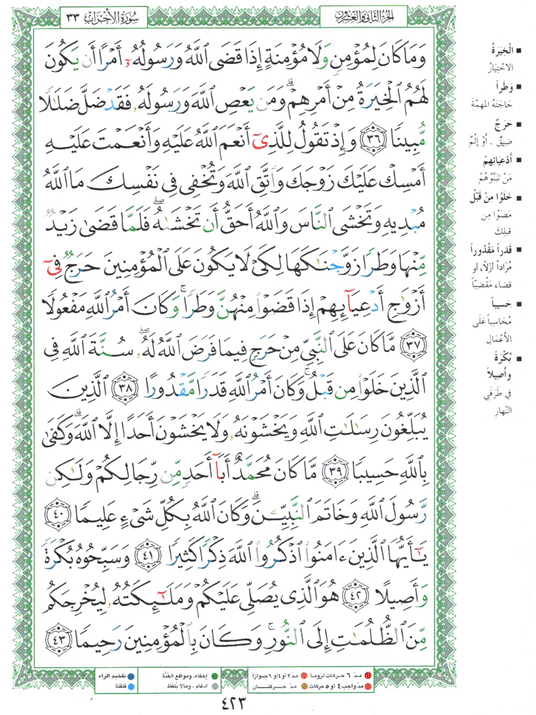 الجزء الثاني والعشرون
سُورَةُ الأحزَاب ٣٣
وَمَا كَانَ لِمُؤْمِنٍ وَلَا مُؤْمِنَةٍ إِذَا قَضَى ٱللَّهُ وَرَسُولُهُۥٓ أَمْرًا أَن يَكُونَ
لَهُمُ ٱلْخِيَرَةُ مِنْ أَمْرِهِمْ ۗ وَمَن يَعْصِ ٱللَّهَ وَرَسُولَهُۥ فَقَدْ ضَلَّ ضَلَٰلًا
مُّبِينًا ٣٦ وَإِذْ تَقُولُ لِلَّذِىٓ أَنْعَمَ ٱللَّهُ عَلَيْهِ وَأَنْعَمْتَ عَلَيْهِ
أَمْسِكْ عَلَيْكَ زَوْجَكَ وَٱتَّقِ ٱللَّهَ وَتُخْفِى فِى نَفْسِكَ مَا ٱللَّهُ
مُبْدِيهِ وَتَخْشَى ٱلنَّاسَ وَٱللَّهُ أَحَقُّ أَن تَخْشَىٰهُ ۖ فَلَمَّا قَضَىٰ زَيْدٌ
مِّنْهَا وَطَرًا زَوَّجْنَٰكَهَا لِكَىْ لَا يَكُونَ عَلَى ٱلْمُؤْمِنِينَ حَرَجٌ فِىٓ
أَزْوَٰجِ أَدْعِيَآئِهِمْ إِذَا قَضَوْا۟ مِنْهُنَّ وَطَرًا ۚ وَكَانَ أَمْرُ ٱللَّهِ مَفْعُولًا
٣٧ مَّا كَانَ عَلَى ٱلنَّبِىِّ مِنْ حَرَجٍ فِيمَا فَرَضَ ٱللَّهُ لَهُۥ ۖ سُنَّةَ ٱللَّهِ فِى
ٱلَّذِينَ خَلَوْا۟ مِن قَبْلُ ۚ وَكَانَ أَمْرُ ٱللَّهِ قَدَرًا مَّقْدُورًا ٣٨ ٱلَّذِينَ
يُبَلِّغُونَ رِسَٰلَٰتِ ٱللَّهِ وَيَخْشَوْنَهُۥ وَلَا يَخْشَوْنَ أَحَدًا إِلَّا ٱللَّهَ ۗ وَكَفَىٰ
بِٱللَّهِ حَسِيبًا ٣٩ مَّا كَانَ مُحَمَّدٌ أَبَآ أَحَدٍ مِّن رِّجَالِكُمْ وَلَٰكِن
رَّسُولَ ٱللَّهِ وَخَاتَمَ ٱلنَّبِيِّـۧنَ ۗ وَكَانَ ٱللَّهُ بِكُلِّ شَىْءٍ عَلِيمًا ٤٠
يَٰٓأَيُّهَا ٱلَّذِينَ ءَامَنُوا۟ ٱذْكُرُوا۟ ٱللَّهَ ذِكْرًا كَثِيرًا ٤١ وَسَبِّحُوهُ بُكْرَةً
وَأَصِيلًا ٤٢ هُوَ ٱلَّذِى يُصَلِّى عَلَيْكُمْ وَمَلَٰٓئِكَتُهُۥ لِيُخْرِجَكُم
مِّنَ ٱلظُّلُمَٰتِ إِلَى ٱلنُّورِ ۚ وَكَانَ بِٱلْمُؤْمِنِينَ رَحِيمًا ٤٣
■ الْخِيَرَةُ
الاختِيَارُ
■ وَطَراً
حَاجَتَهُ المهمّة
■ حَرَجٌ
ضِيقٌ. أَوْ إثْمٌ
■ أَدْعِيَائِهِمْ
مَنْ تبَنَّوْهُمْ
■ خَلَوْا مِنْ قَبْلُ
مَضَوْا مِن
قبلِكَ
■ قَدَراً مَقْدُوراً
مُرَاداً أزلاً، أو
قضاء مَقْضِيّاً
■ حَسِيباً
مُحَاسِباً عَلَى
الأعْمَالِ
■ بُكْرَةً
وأصِيلاً
في طَرَفَي
النّهار
مدّ ٦ حركات لزوماً
مدّ ٢ او ٤ او ٦ جوازاً
إخفاء، ومواقع الغُنَّة
تفخيم الراء
مدّ واجب ٤ او ٥ حركات
مدّ حركتان
ادغام، ومالا يُلفَظ
قلقلة
٤٢٣